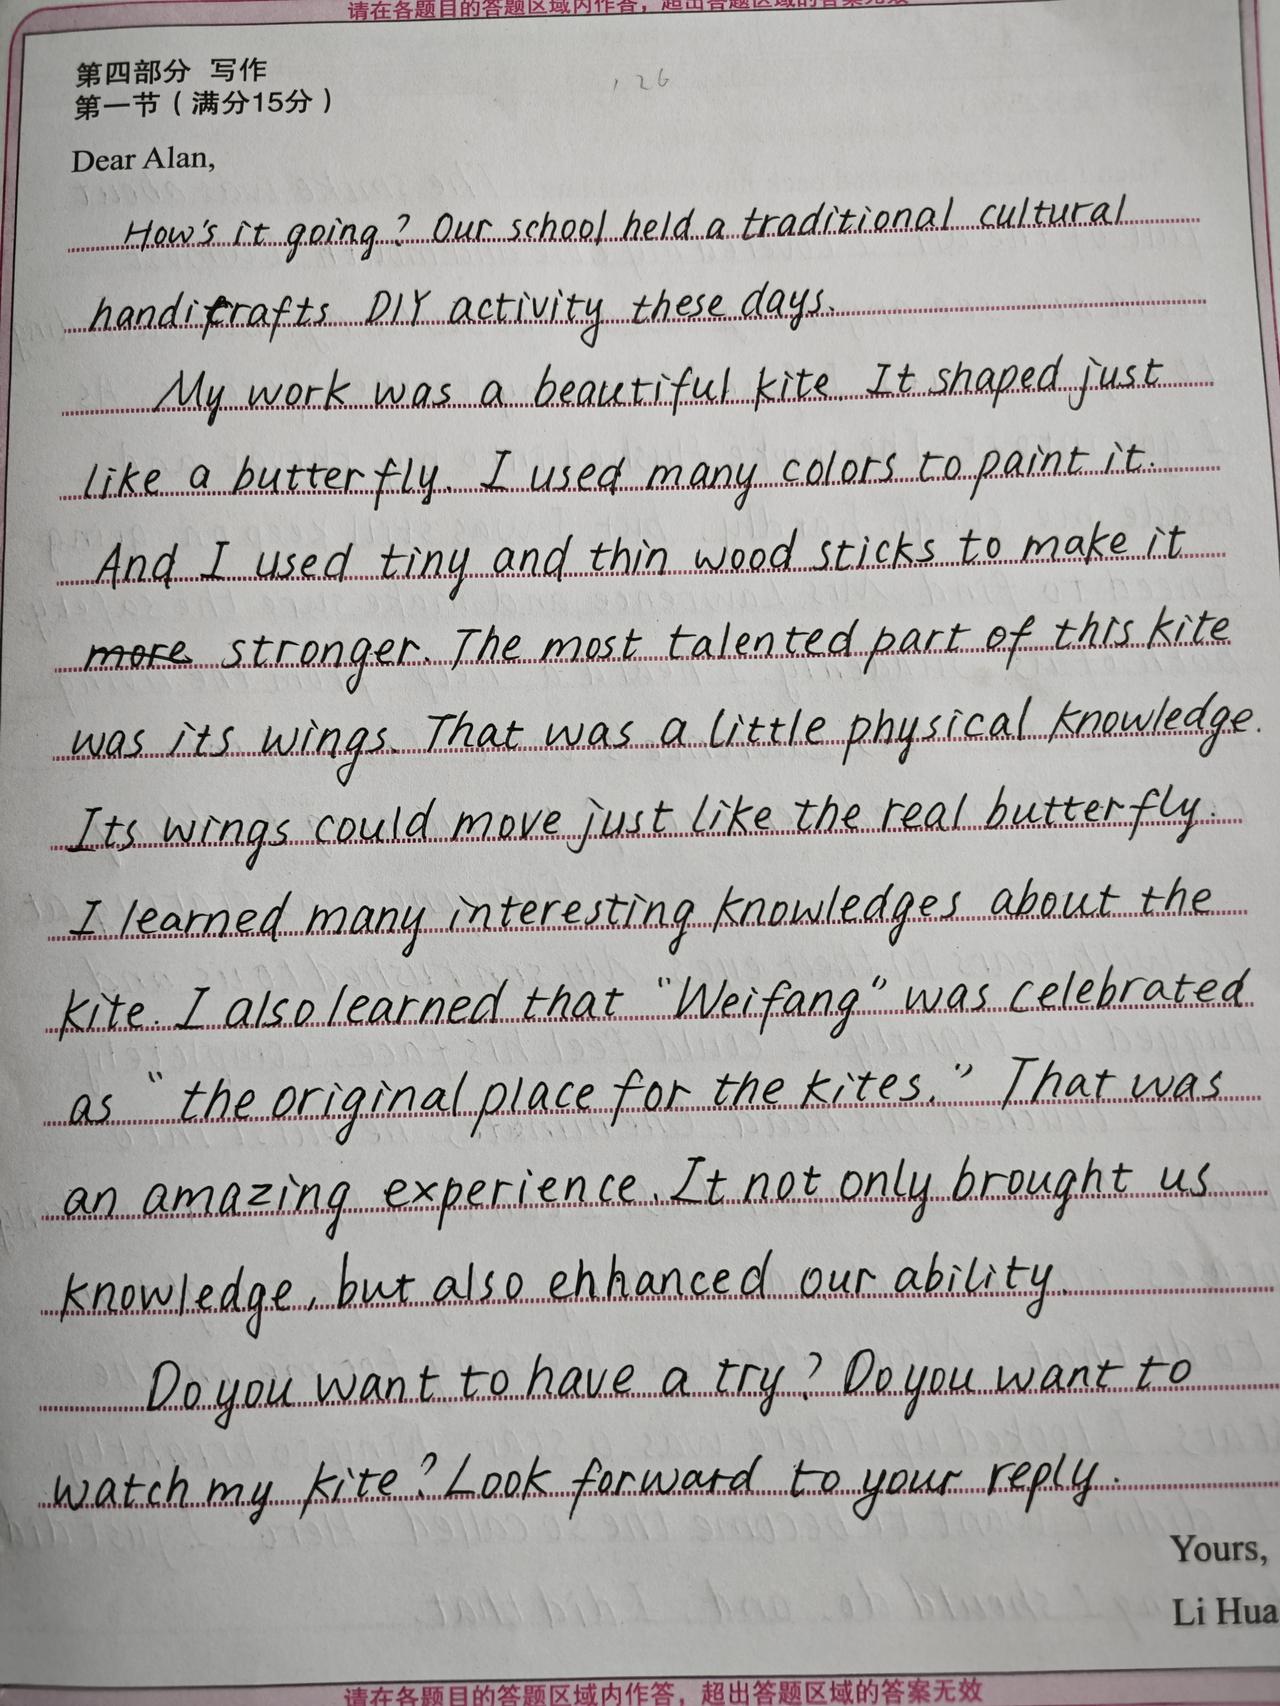 请在各题目的答题区域内作答，超出答题区域的答案无效
第四部分 写作
第一节（满分15分）
126
Dear Alan,
How's it going? Our school held a traditional cultural
handicrafts DIY activity these days.
My work was a beautiful kite. It shaped just
like a butterfly. I used many colors to paint it.
And I used tiny and thin wood sticks to make it
more stronger. The most talented part of this kite
was its wings. That was a little physical knowledge.
Its wings could move just like the real butterfly.
I learned many interesting knowledges about the
kite. I also learned that "Weifang" was celebrated
as "the original place for the kites." That was
an amazing experience. It not only brought us
knowledge, but also enhanced our ability.
Do you want to have a try? Do you want to
watch my kite? Look forward to your reply.
Yours,
Li Hua
请在各题目的答题区域内作答，超出答题区域的答案无效